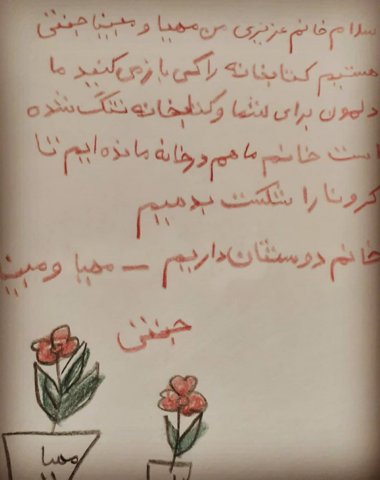 سلام خانم عزیزی من مهیا و مبینا جنتی
هستیم کتابخانه را کی باز می کنید ما
دلمون برای شما و کتابخانه تنگ شده
است خانم ما هم در خانه مانده ایم تا
کرونا را شکست بدهیم
خانم دوستتان داریم – مهیا و مبینا
جنتی
مهیا